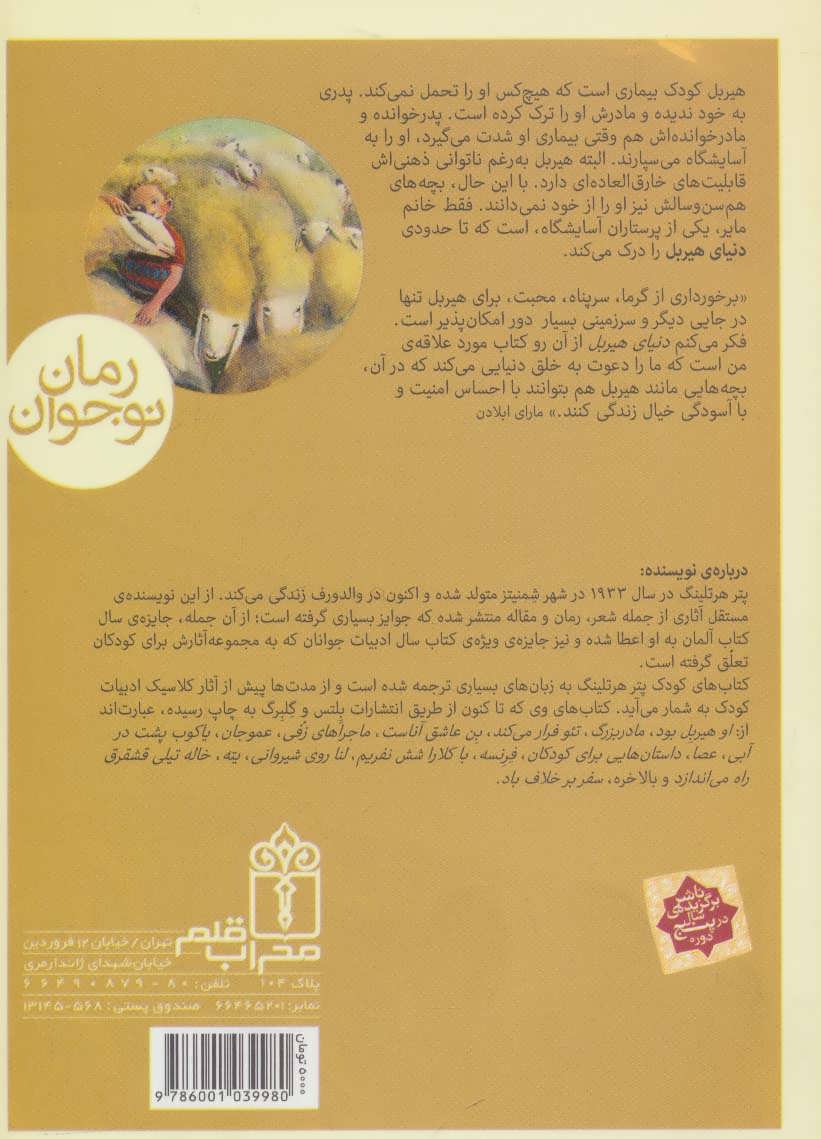 هیربل کودک بیماری است که هیچ‌کس او را تحمل نمی‌کند. پدری
به خود ندیده و مادرش او را ترک کرده است. پدرخوانده و
مادرخوانده‌اش هم وقتی بیماری او شدت می‌گیرد، او را به
آسایشگاه می‌سپارند. البته هیربل به‌رغم ناتوانی ذهنی‌اش
قابلیت‌های خارق‌العاده‌ای دارد. با این حال، بچه‌های
هم‌سن‌وسالش نیز او را از خود نمی‌دانند. فقط خانم
مایر، یکی از پرستاران آسایشگاه، است که تا حدودی
دنیای هیربل را درک می‌کند.
«برخورداری از گرما، سرپناه، محبت، برای هیربل تنها
در جایی دیگر و سرزمینی بسیار دور امکان‌پذیر است.
فکر می‌کنم دنیای هیربل از آن رو کتاب مورد علاقه‌ی
من است که ما را دعوت به خلق دنیایی می‌کند که در آن،
بچه‌هایی مانند هیربل هم بتوانند با احساس امنیت و
با آسودگی خیال زندگی کنند.» مارای ابلادن
رمان
نوجوان
درباره‌ی نویسنده:
پتر هرتلینگ در سال ۱۹۳۳ در شهر شِمنیتز متولد شده و اکنون در والدورف زندگی می‌کند. از این نویسنده‌ی
مستقل آثاری از جمله شعر، رمان و مقاله منتشر شده که جوایز بسیاری گرفته است؛ از آن جمله، جایزه‌ی سال
کتاب آلمان به او اعطا شده و نیز جایزه‌ی ویژه‌ی کتاب سال ادبیات جوانان که به مجموعه‌آثارش برای کودکان
تعلّق گرفته است.
کتاب‌های کودک پتر هرتلینگ به زبان‌های بسیاری ترجمه شده است و از مدت‌ها پیش از آثار کلاسیک ادبیات
کودک به شمار می‌آید. کتاب‌های وی که تا کنون از طریق انتشارات بِلتس و گلبرگ به چاپ رسیده، عبارت‌اند
از: او هیربل بود، مادربزرگ، تئو فرار می‌کند، بن عاشق آناست، ماجراهای زُفی، عموجان، یاکوب پشت در
آبی، عصا، داستان‌هایی برای کودکان، فِرِنسه، با کلارا شش نفریم، لنا روی شیروانی، یتّه، خاله تیلی قشقرق
راه می‌اندازد و بالاخره، سفر بر خلاف باد.
ناشر
برگزیده‌ی
سال
در پنج
دوره
محراب قلم
تهران / خیابان ۱۲ فروردین
خیابان شهدای ژاندارمری
پلاک ۱۰۴ تلفن: ۸۰-۶۶۴۹۰۸۷۹
نمابر: ۶۶۴۶۵۲۰۱ صندوق پستی: ۵۶۸-۱۳۱۴۵
۵۰۰۰ تومان
9 786001 039980